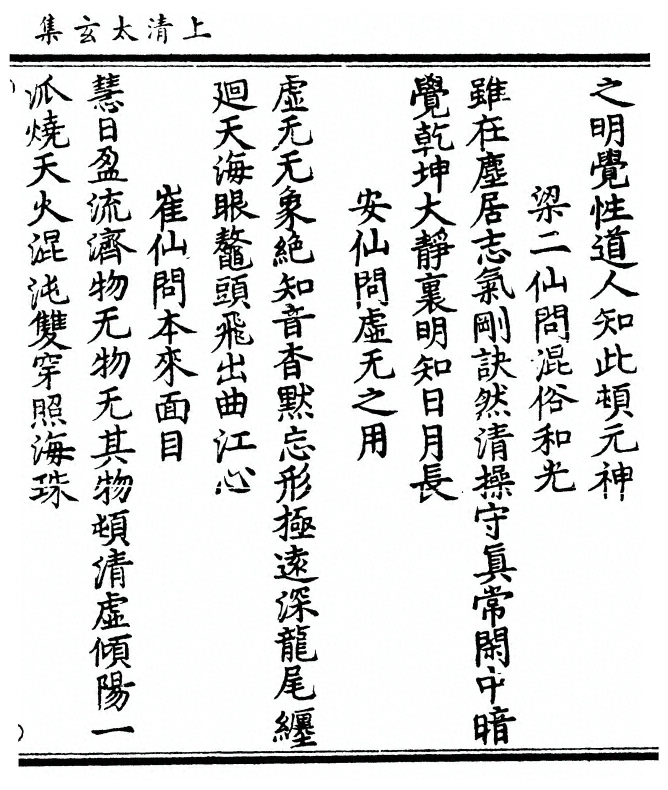 上清太玄集
之明覺性道人知此頓元神
梁二仙問混俗和光
雖在塵居志氣剛訣然清操守真常閑中暗
覺乾坤大靜裏明知日月長
安仙問虛无之用
虛无无象絶知音杳默忘形極遠深龍尾纏
廻天海眼鼇頭飛出曲江心
崔仙問本來面目
慧日盈流濟物无物无其物頓清虛傾陽一
派燒天火混沌雙穿照海珠